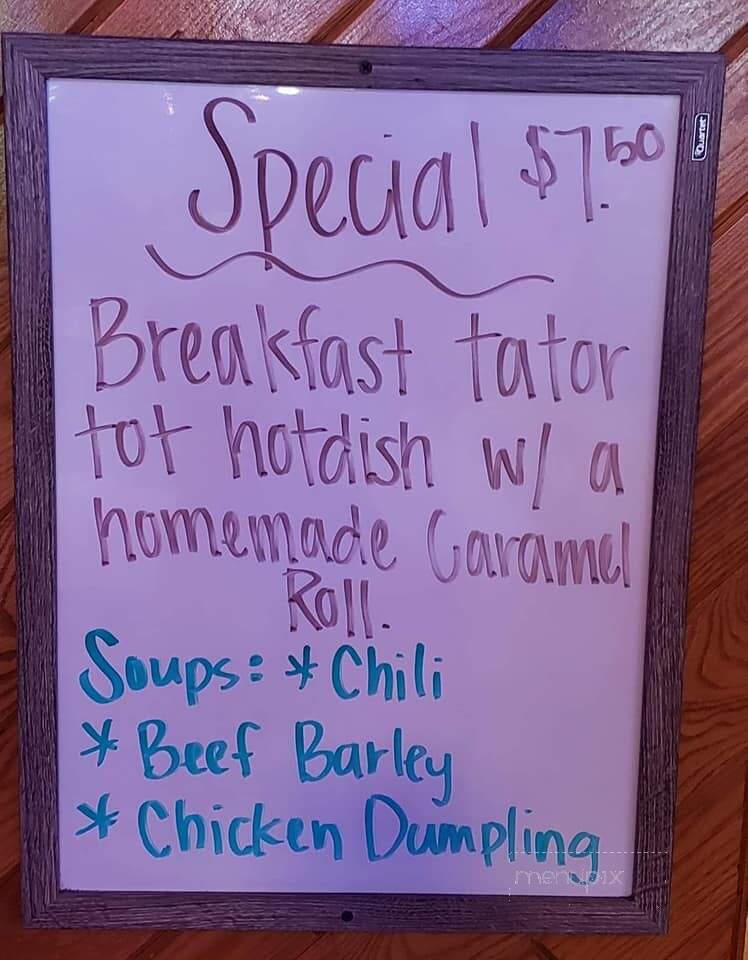 Special $7.50
Quartet
Breakfast tator
tot hotdish w/ a
homemade Caramel
Roll.
Soups: * Chili
* Beef Barley
* Chicken Dumpling
menupix